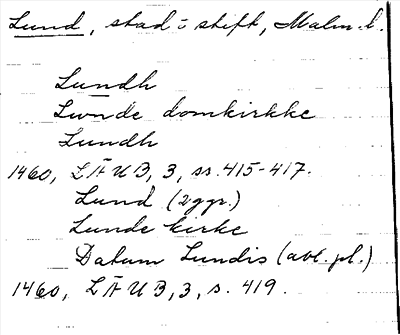 Lund, stad o stift, Malm. l.
Lundh
Lunde domkirkke
Lundh
1460, LÄUB, 3, ss. 415-417.
Lund (2ggr.)
Lunde kirke
Datum Lundis (abl. pl.)
1460, LÄUB, 3, s. 419.